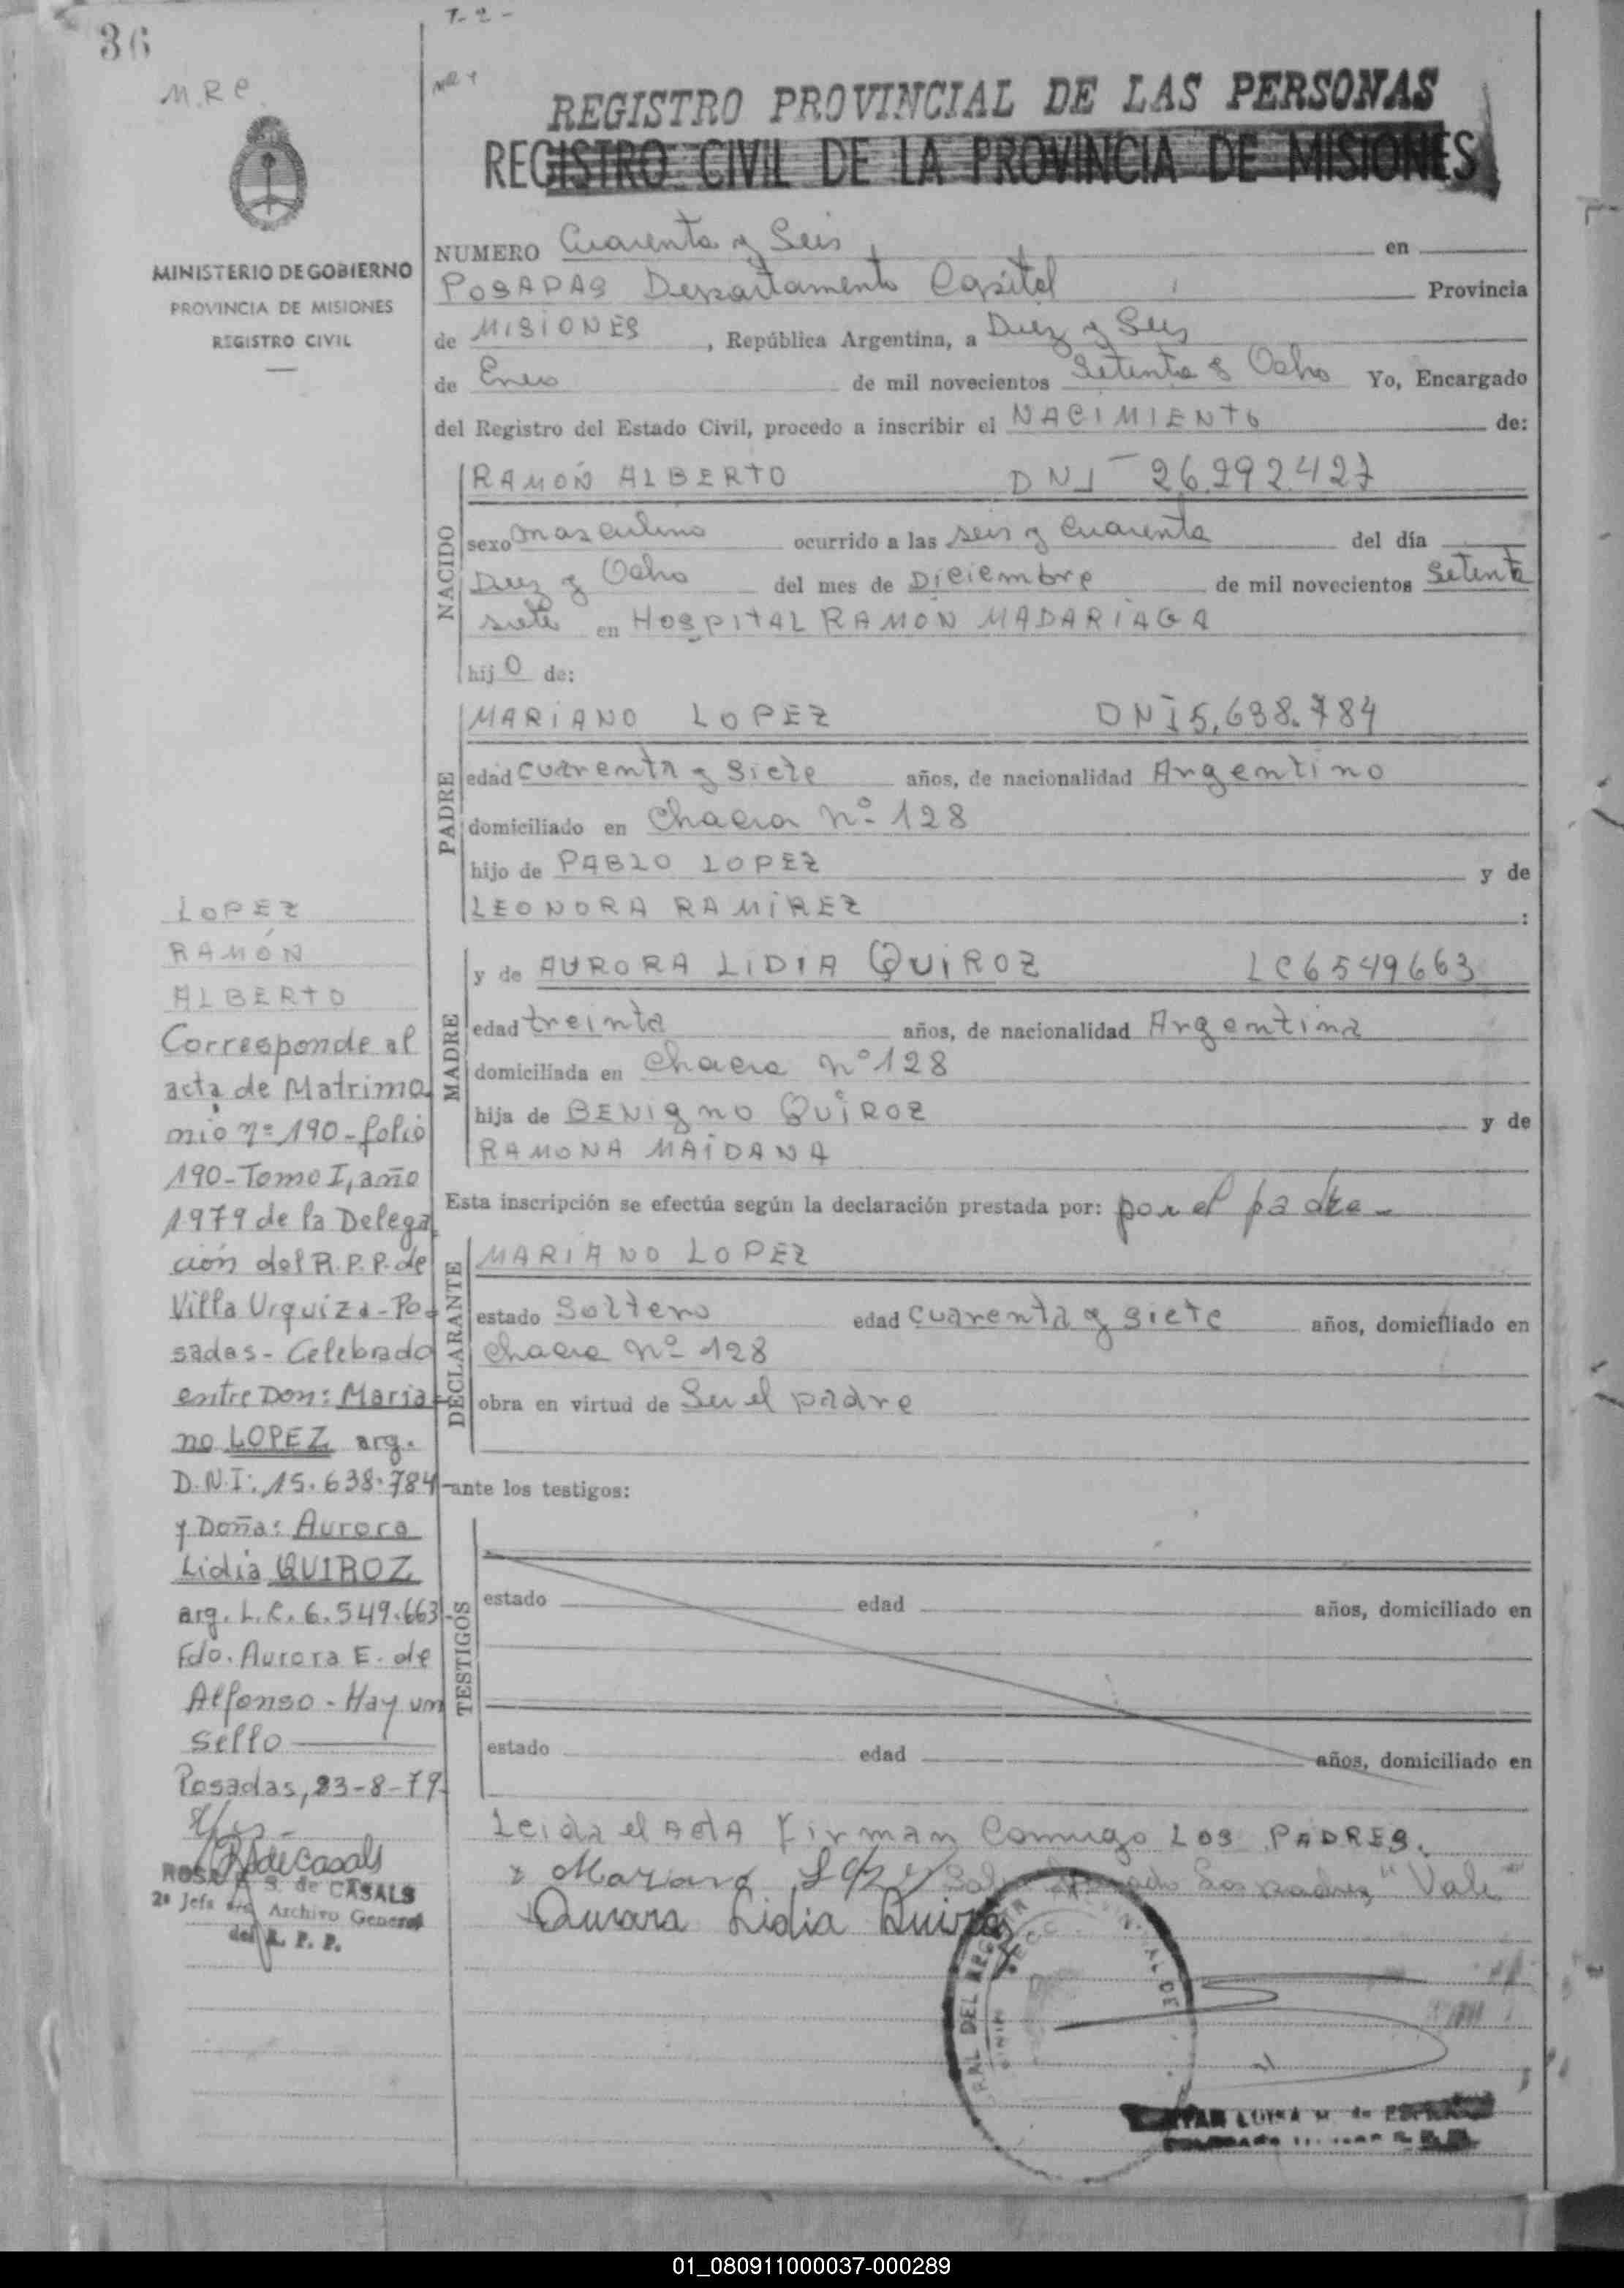 36
T- 2 -
M.R.C.
REGISTRO PROVINCIAL DE LAS PERSONAS
REGISTRO CIVIL DE LA PROVINCIA DE MISIONES
MINISTERIO DE GOBIERNO
PROVINCIA DE MISIONES
REGISTRO CIVIL
NUMERO Cuarenta y Seis en
POSADAS Departamento Capital Provincia
de MISIONES, República Argentina, a Diez y Seis
de Enero de mil novecientos Setenta y Ocho Yo, Encargado
del Registro del Estado Civil, procedo a inscribir el NACIMIENTO de:
NACIDO
RAMÓN ALBERTO DNI 26.292.427
sexo masculino ocurrido a las seis y cuarenta del día
Diez y Ocho del mes de Diciembre de mil novecientos Setenta
siete en HOSPITAL RAMÓN MADARIAGA
hijo de:
PADRE
MARIANO LOPEZ DNI 5.638.784
edad cuarenta y siete años, de nacionalidad Argentino
domiciliado en Chacra nº 128
hijo de PABLO LOPEZ y de
LEONORA RAMIREZ :
MADRE
y de AURORA LIDIA QUIROZ LC 6549663
edad treinta años, de nacionalidad Argentina
domiciliada en Chacra nº 128
hija de BENIGNO QUIROZ y de
RAMONA MAIDANA
Esta inscripción se efectúa según la declaración prestada por: por el padre -
DECLARANTE
MARIANO LOPEZ
estado Soltero edad cuarenta y siete años, domiciliado en
Chacra nº 128
obra en virtud de Ser el padre
ante los testigos:
TESTIGOS
estado edad años, domiciliado en
estado edad años, domiciliado en
Leida el Acta firman Conmigo LOS PADRES.
Mariano Lopez los padres "Vale"
Aurora Lidia Quiroz
LOPEZ
RAMÓN
ALBERTO
Corresponde al
acta de Matrimo
nio nº 190 - folio
190 - Tomo I, año
1979 de la Delega
ción del R.P.P. de
Villa Urquiza - Po
sadas - Celebrado
entre Don: Maria
no LOPEZ arg.
D.N.I: 15.638.784-
y Doña: Aurora
Lidia QUIROZ
arg. L.C. 6.549.663-
Fdo. Aurora E. de
Alfonso - Hay un
sello
Posadas, 23-8-79.
ROSA S. de CASALS
2º Jefe Archivo General
del R. P. P.
01_080911000037-000289